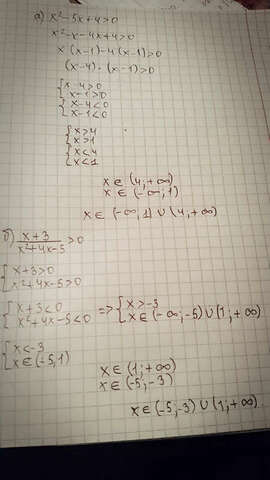 а) x²-5x+4>0
x²-x-4x+4>0
x(x-1)-4(x-1)>0
(x-4)·(x-1)>0
{x-4>0
x-1>0
{x-4<0
x-1<0
{x>4
x>1
{x<4
x<1
x∈(4;+∞)
x∈(-∞;1)
x∈(-∞;1)∪(4;+∞)
б) x+3/x²+4x-5>0
{x+3>0
x²+4x-5>0
{x+3<0
x²+4x-5<0
=>{x>-3
x∈(-∞;-5)∪(1;+∞)
{x<-3
x∈(-5;1)
x∈(1;+∞)
x∈(-5;-3)
x∈(-5;-3)∪(1;+∞)